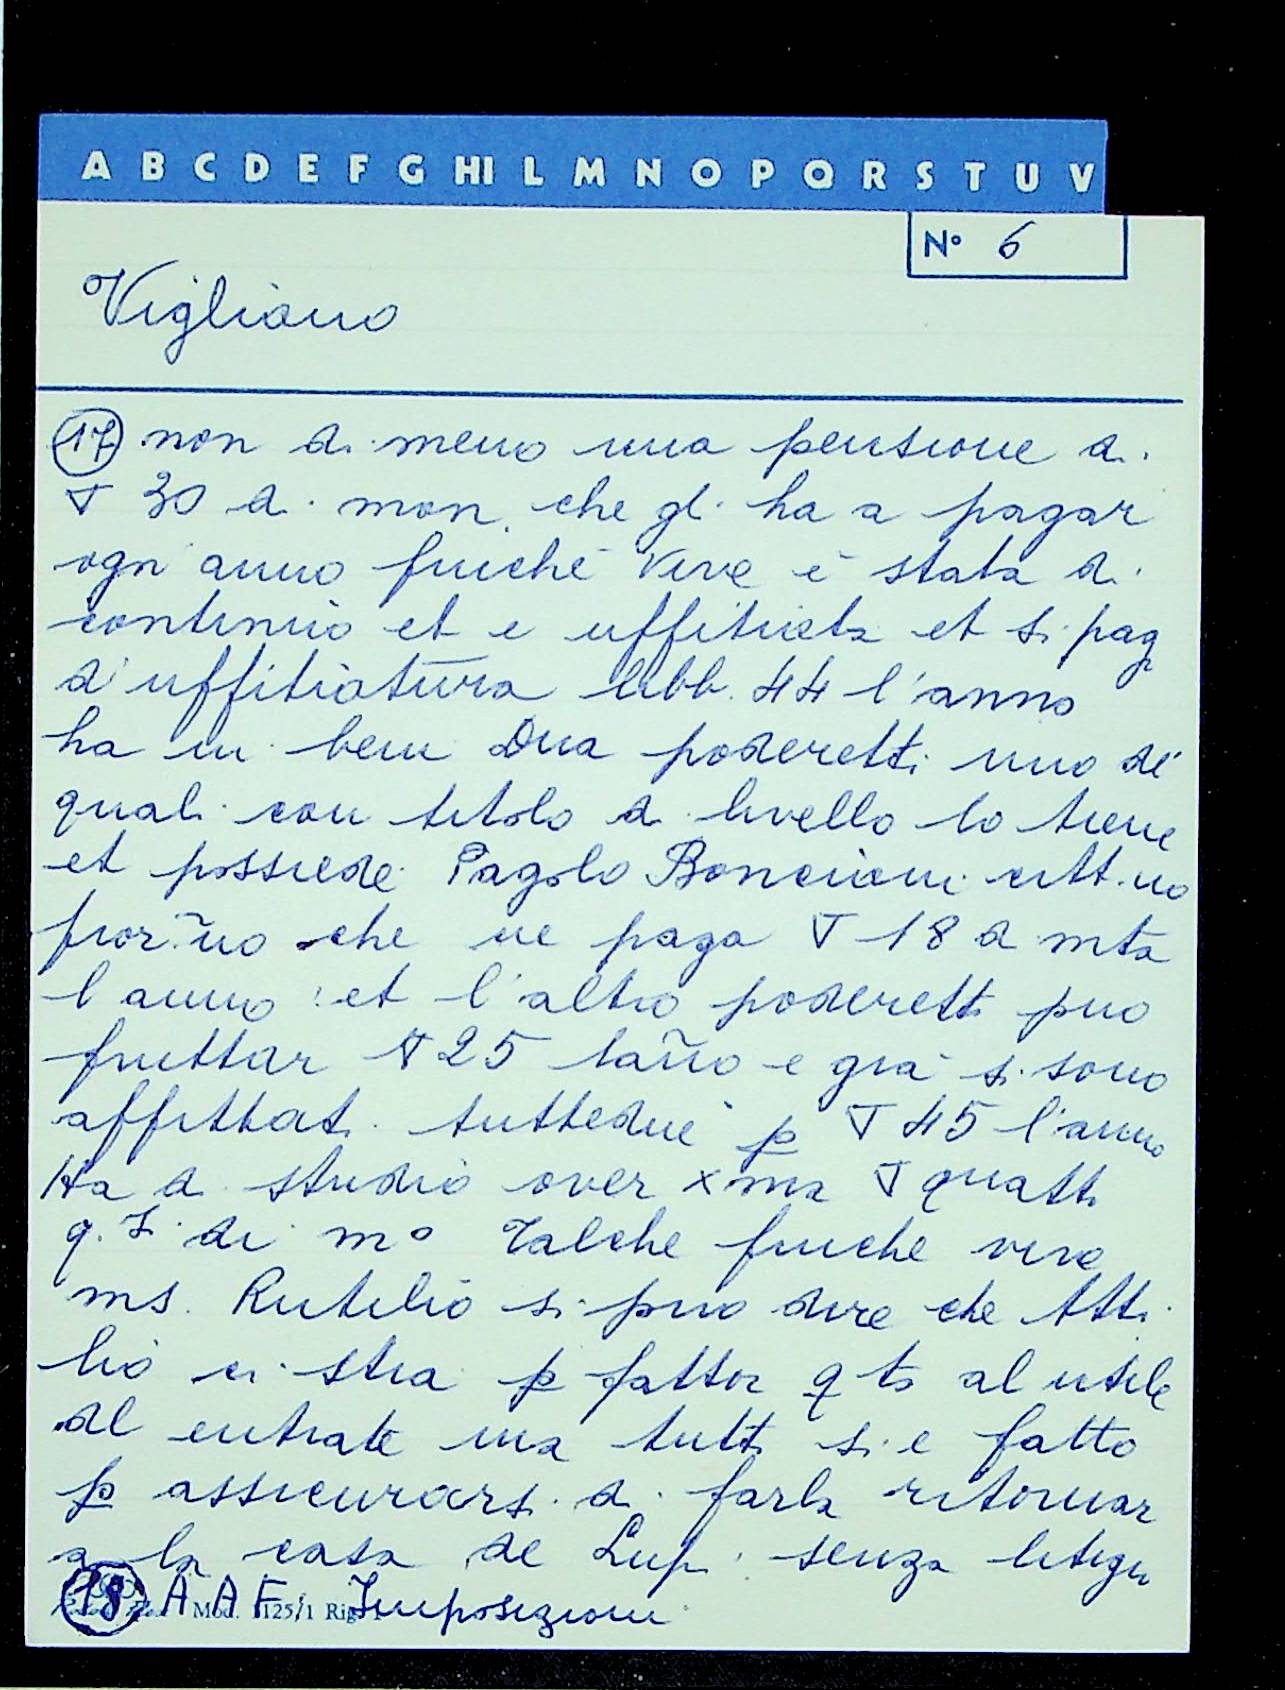 A B C D E F G HI L M N O P Q R S T U V
N° 6
Vigliano
17 non di meno una pensione di
∇ 30 di mon. che gli ha a pagar
ogni anno finche vive è stata di
continuo et e uffitiata et si pag
d'uffitiatura libb. 44 l'anno
ha in beni Dua poderetti uno de'
quali con titolo di livello lo tiene
et possiede Pagolo Bonciani citt.no
fior.no che ne paga ∇ 18 di mta
l'anno: et l'altro poderetti puo
fruttar ∇ 25 lañno e già si sono
affittati tuttedue p ∇ 45 l'anno
Ha di studio over xma ∇ quatti
q. di m° Talche finche vive
ms. Rutilio si puo dire che Atti
lio ci stia p fattor q to al utile
del entrate ma tutti si e fatto
p assicurarsi di farla ritornar
a la casa de Lupi senza litigii
18 A A F Imposizioni
Mod. 125/1 Rig.